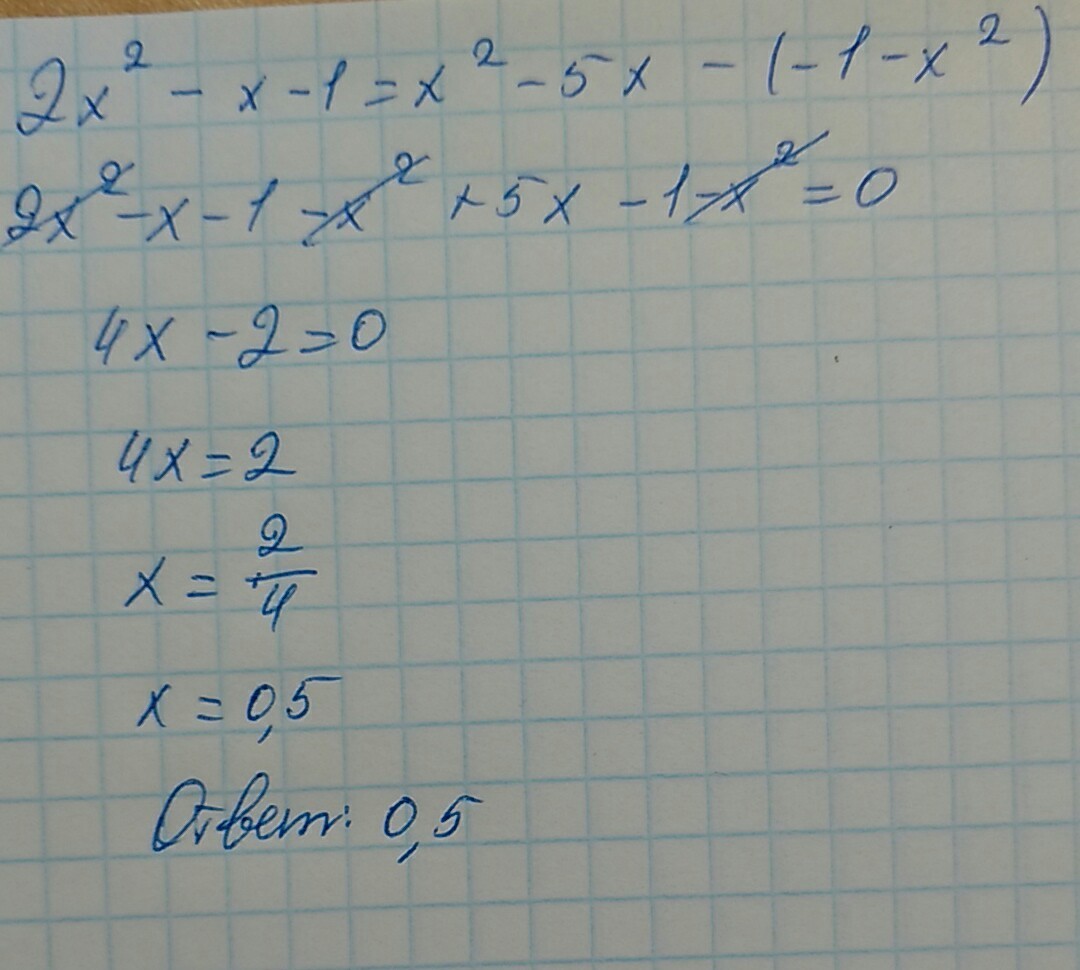 2x² - x - 1 = x² - 5x - (-1 - x²)
2x² - x - 1 - x² + 5x - 1 - x² = 0
4x - 2 = 0
4x = 2
x = 2/4
x = 0,5
Ответ: 0,5